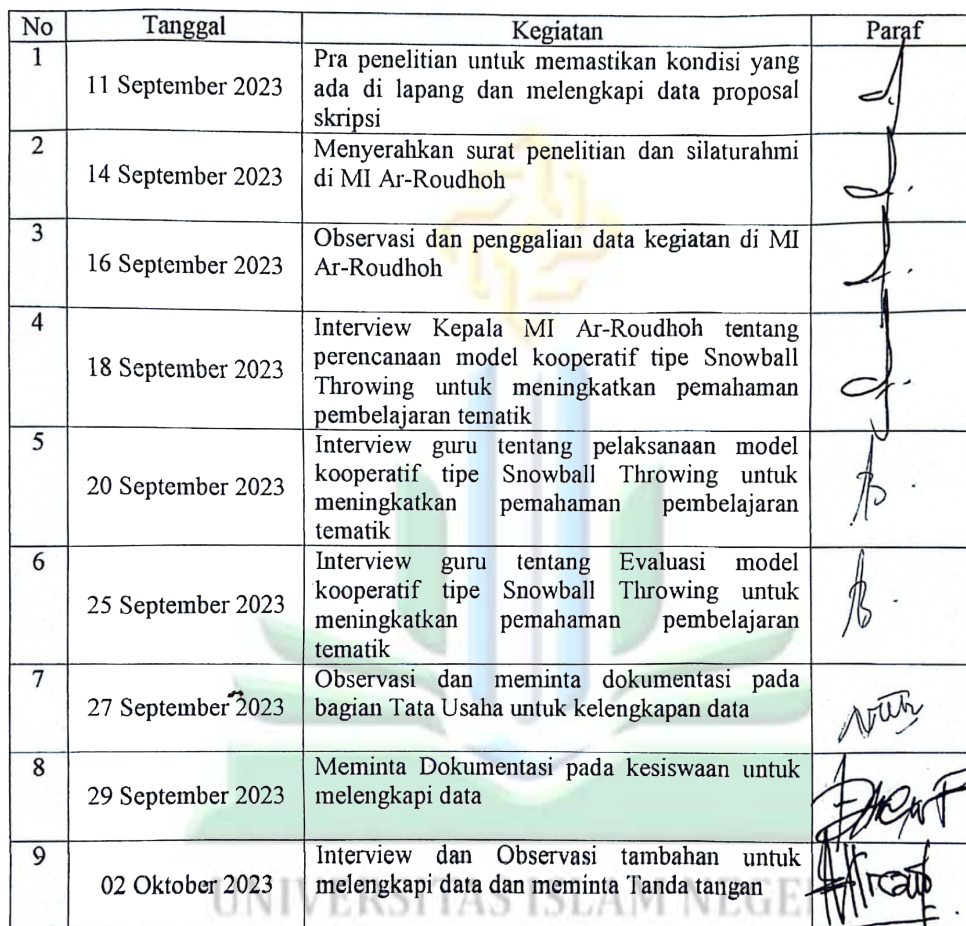 No Tanggal Kegiatan Paraf
1
11 September 2023
Pra penelitian untuk memastikan kondisi yang
ada di lapang dan melengkapi data proposal
skripsi
2
14 September 2023
Menyerahkan surat penelitian dan silaturahmi
di MI Ar-Roudhoh
3
16 September 2023
Observasi dan penggalian data kegiatan di MI
Ar-Roudhoh
4
18 September 2023
Interview Kepala MI Ar-Roudhoh tentang
perencanaan model kooperatif tipe Snowball
Throwing untuk meningkatkan pemahaman
pembelajaran tematik
5
20 September 2023
Interview guru tentang pelaksanaan model
kooperatif tipe Snowball Throwing untuk
meningkatkan pemahaman pembelajaran
tematik
6
25 September 2023
Interview guru tentang Evaluasi model
kooperatif tipe Snowball Throwing untuk
meningkatkan pemahaman pembelajaran
tematik
7
27 September 2023
Observasi dan meminta dokumentasi pada
bagian Tata Usaha untuk kelengkapan data
8
29 September 2023
Meminta Dokumentasi pada kesiswaan untuk
melengkapi data
9
02 Oktober 2023
Interview dan Observasi tambahan untuk
melengkapi data dan meminta Tanda tangan
UNIVERSITAS ISLAM NEGERI